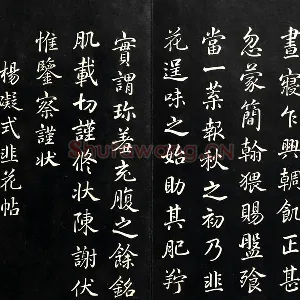 晝寢乍興朝飢正甚
忽蒙簡翰猥賜盤飧
當一葉報秋之初乃韭
花逞味之始助其肥羜
實謂珍羞充腹之餘銘
肌載切謹修狀陳謝伏
惟鑒察謹狀
楊凝式韭花帖
Shufawang.CN